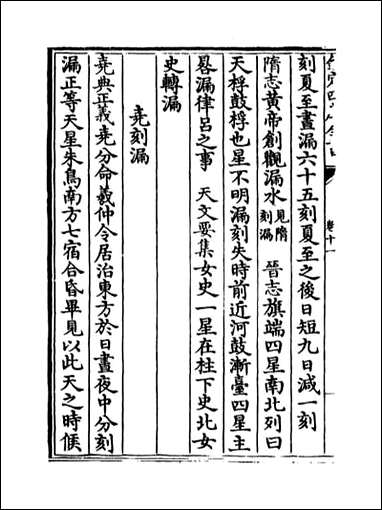 刻夏至晝漏六十五刻夏至之後日短九日減一刻
隋志黃帝創觀漏水見隋刻漏 晉志旗端四星南北列曰
天桴鼓桴也星不明漏刻失時前近河鼓漸臺四星主
晷漏律呂之事 天文要集女史一星在柱下史北女
史轉漏
堯刻漏
堯典正義堯分命羲仲令居治東方於日晝夜中分刻
漏正等天星朱鳥南方七宿合昏畢見以此天之時候
卷十一